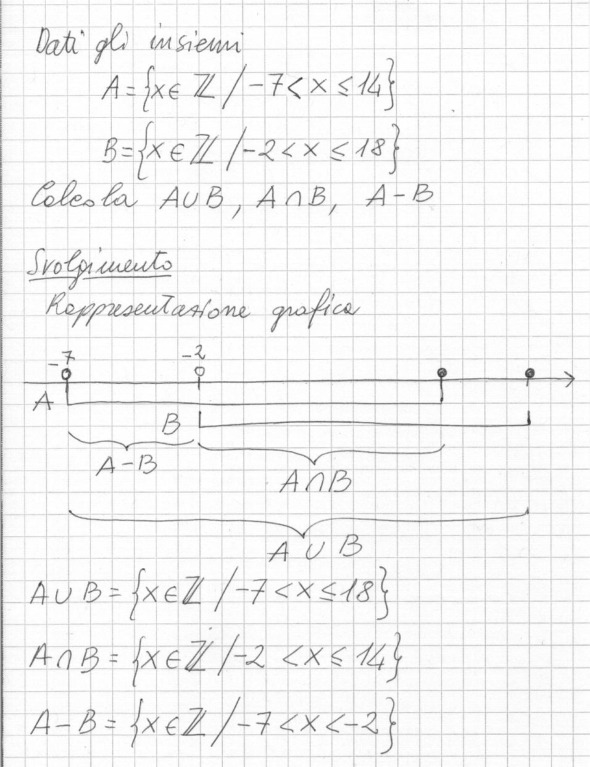 Dati gli insiemi
A={x∈ℤ / -7<x≤14}
B={x∈ℤ / -2<x≤18}
Calcola A∪B, A∩B, A-B
Svolgimento
Rappresentazione grafica
-7 -2
A
B
A-B
A∩B
A∪B
A∪B={x∈ℤ / -7<x≤18}
A∩B={x∈ℤ / -2<x≤14}
A-B={x∈ℤ / -7<x<-2}